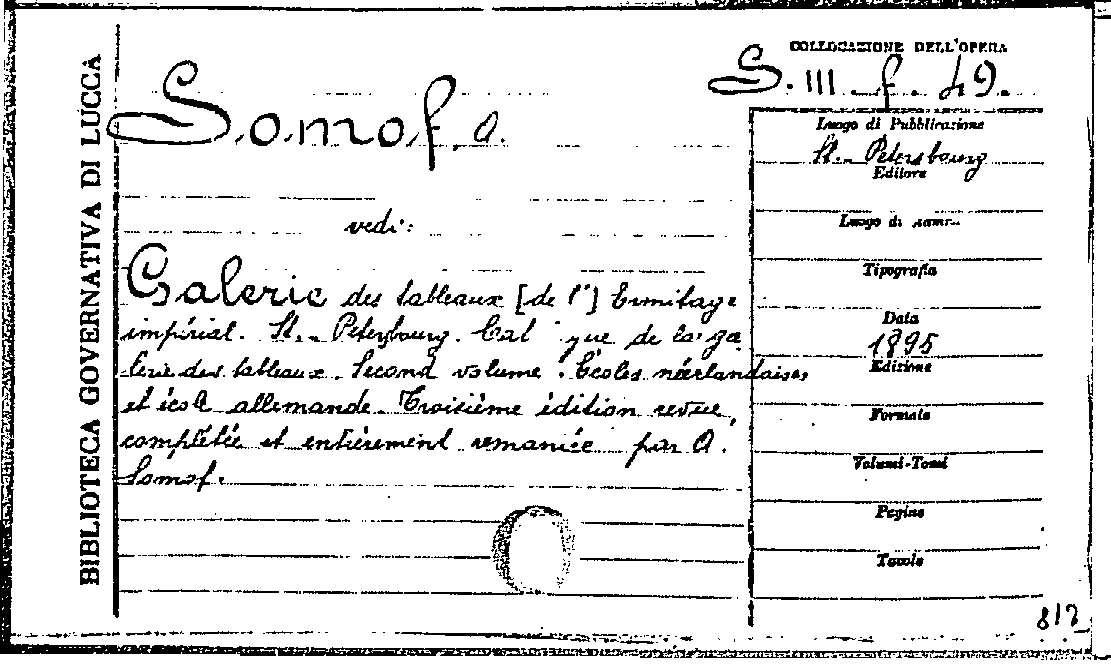 BIBLIOTECA GOVERNATIVA DI LUCCA
COLLOCAZIONE DELL'OPERA
S. III. f. 49.
Somof, A.
vedi:
Galerie des tableaux [de l'] Ermitage
impérial. St. Petersbourg. Cat gue de la ga
lerie des tableaux. Second volume. Écoles néerlandaises
et école allemande Troisième édition revue,
complétée et entièrement remaniée par A.
Somof.
Luogo di Pubblicazione
St. Petersbourg
Editore
Luogo di
Tipografia
Data
1895
Edizione
Formato
Volumi-Tomi
Pagine
Tavole